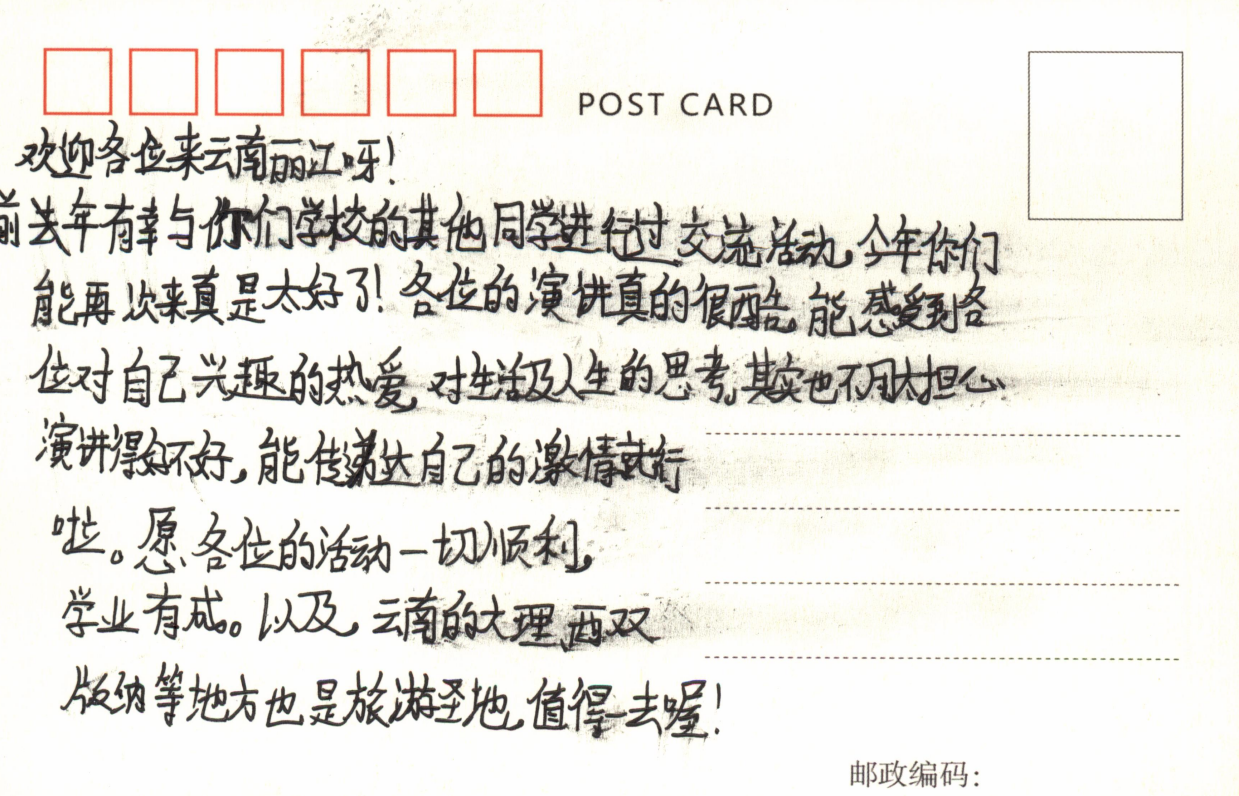 POST CARD
欢迎各位来云南丽江呀!
前去年有幸与你们学校的其他同学进行过交流活动,今年你们
能再次来真是太好了!各位的演讲真的很酷,能感受到各
位对自己兴趣的热爱,对生活及人生的思考,其实也不用太担心
演讲得好不好,能传递达自己的激情就行
啦。愿各位的活动一切顺利,
学业有成。以及,云南的大理,西双
版纳等地方也是旅游圣地,值得一去喔!
邮政编码: